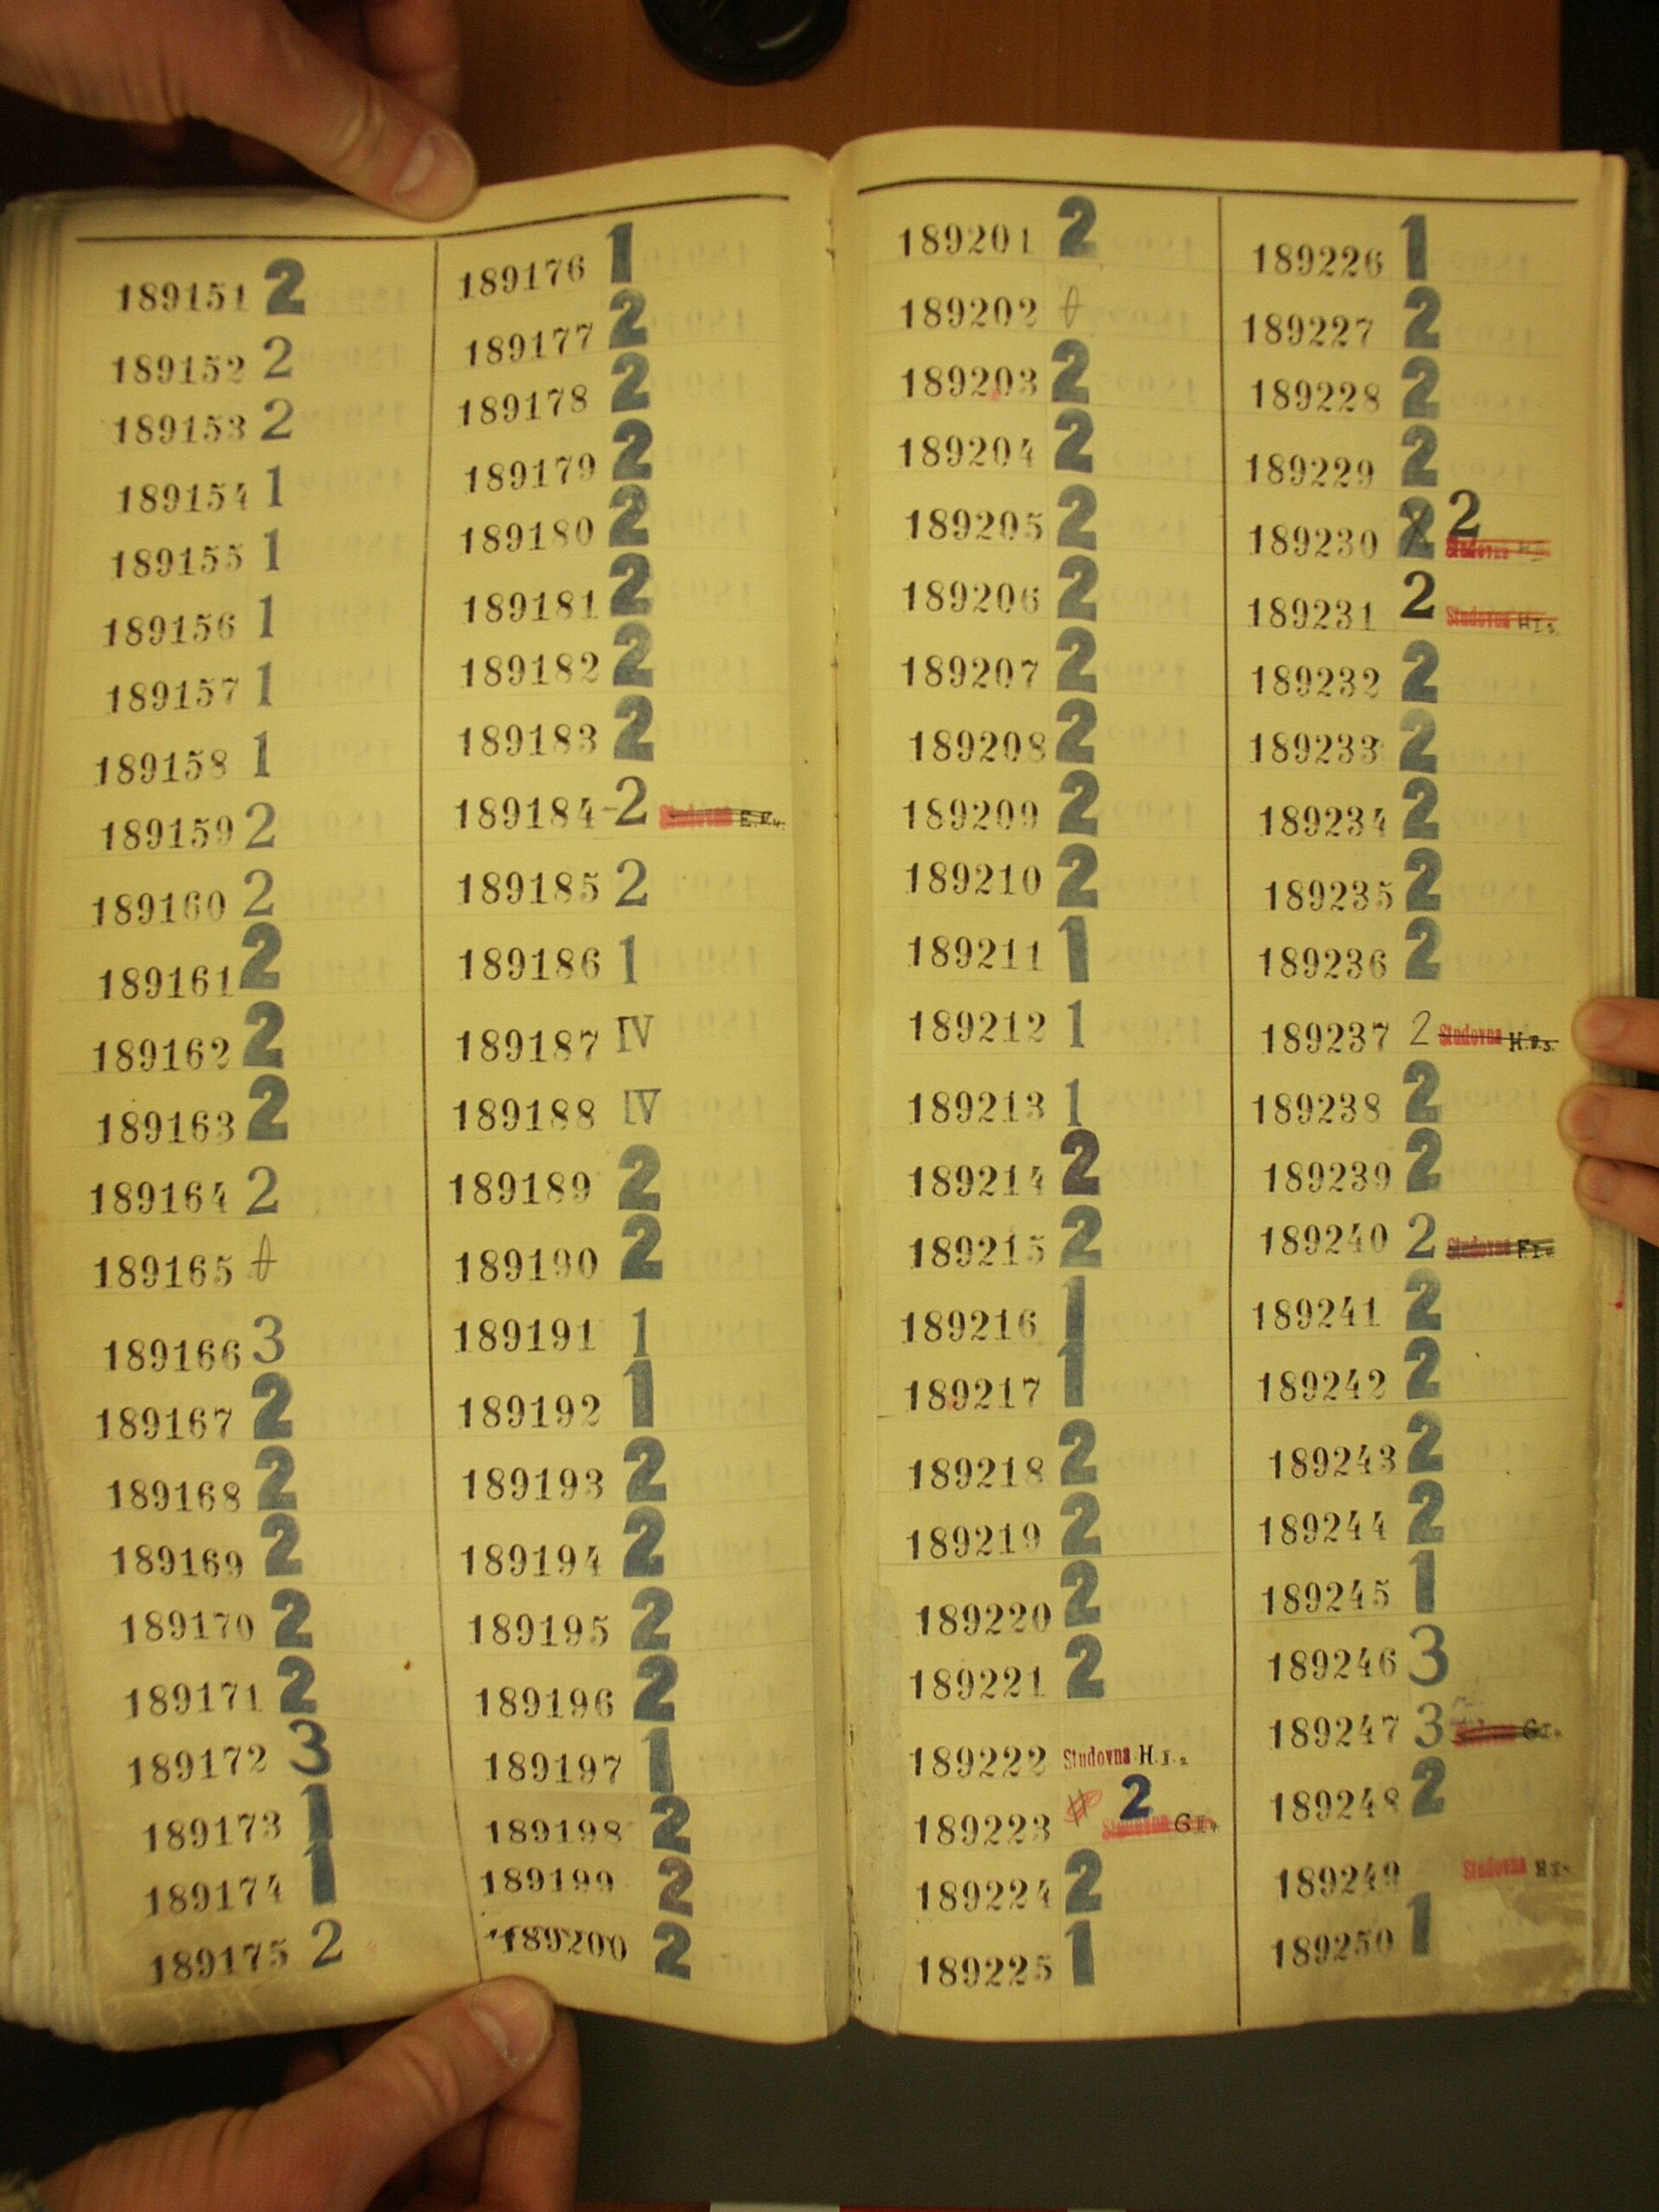 189151 2
189152 2
189153 2
189154 1
189155 1
189156 1
189157 1
189158 1
189159 2
189160 2
189161 2
189162 2
189163 2
189164 2
189165
189166 3
189167 2
189168 2
189169 2
189170 2
189171 2
189172 3
189173 1
189174 1
189175 2
189176 1
189177 2
189178 2
189179 2
189180 2
189181 2
189182 2
189183 2
189184 2 Studovna
189185 2
189186 1
189187 IV
189188 IV
189189 2
189190 2
189191 1
189192 1
189193 2
189194 2
189195 2
189196 2
189197 1
189198 2
189199 2
189200 2
189201 2
189202
189203 2
189204 2
189205 2
189206 2
189207 2
189208 2
189209 2
189210 2
189211 1
189212 1
189213 1
189214 2
189215 2
189216 1
189217 1
189218 2
189219 2
189220 2
189221 2
189222 Studovna H.I.2
189223 2 Studovna
189224 2
189225 1
189226 1
189227 2
189228 2
189229 2
189230 2 2 Studovna
189231 2 Studovna
189232 2
189233 2
189234 2
189235 2
189236 2
189237 2 Studovna
189238 2
189239 2
189240 2 Studovna
189241 2
189242 2
189243 2
189244 2
189245 1
189246 3
189247 3
189248 2
189249 Studovna
189250 1